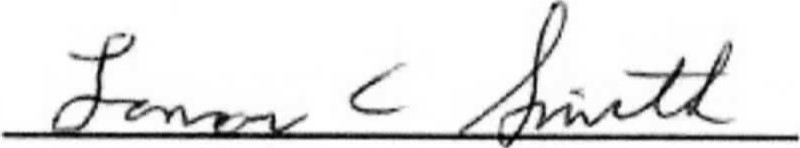 Lamar C Smith